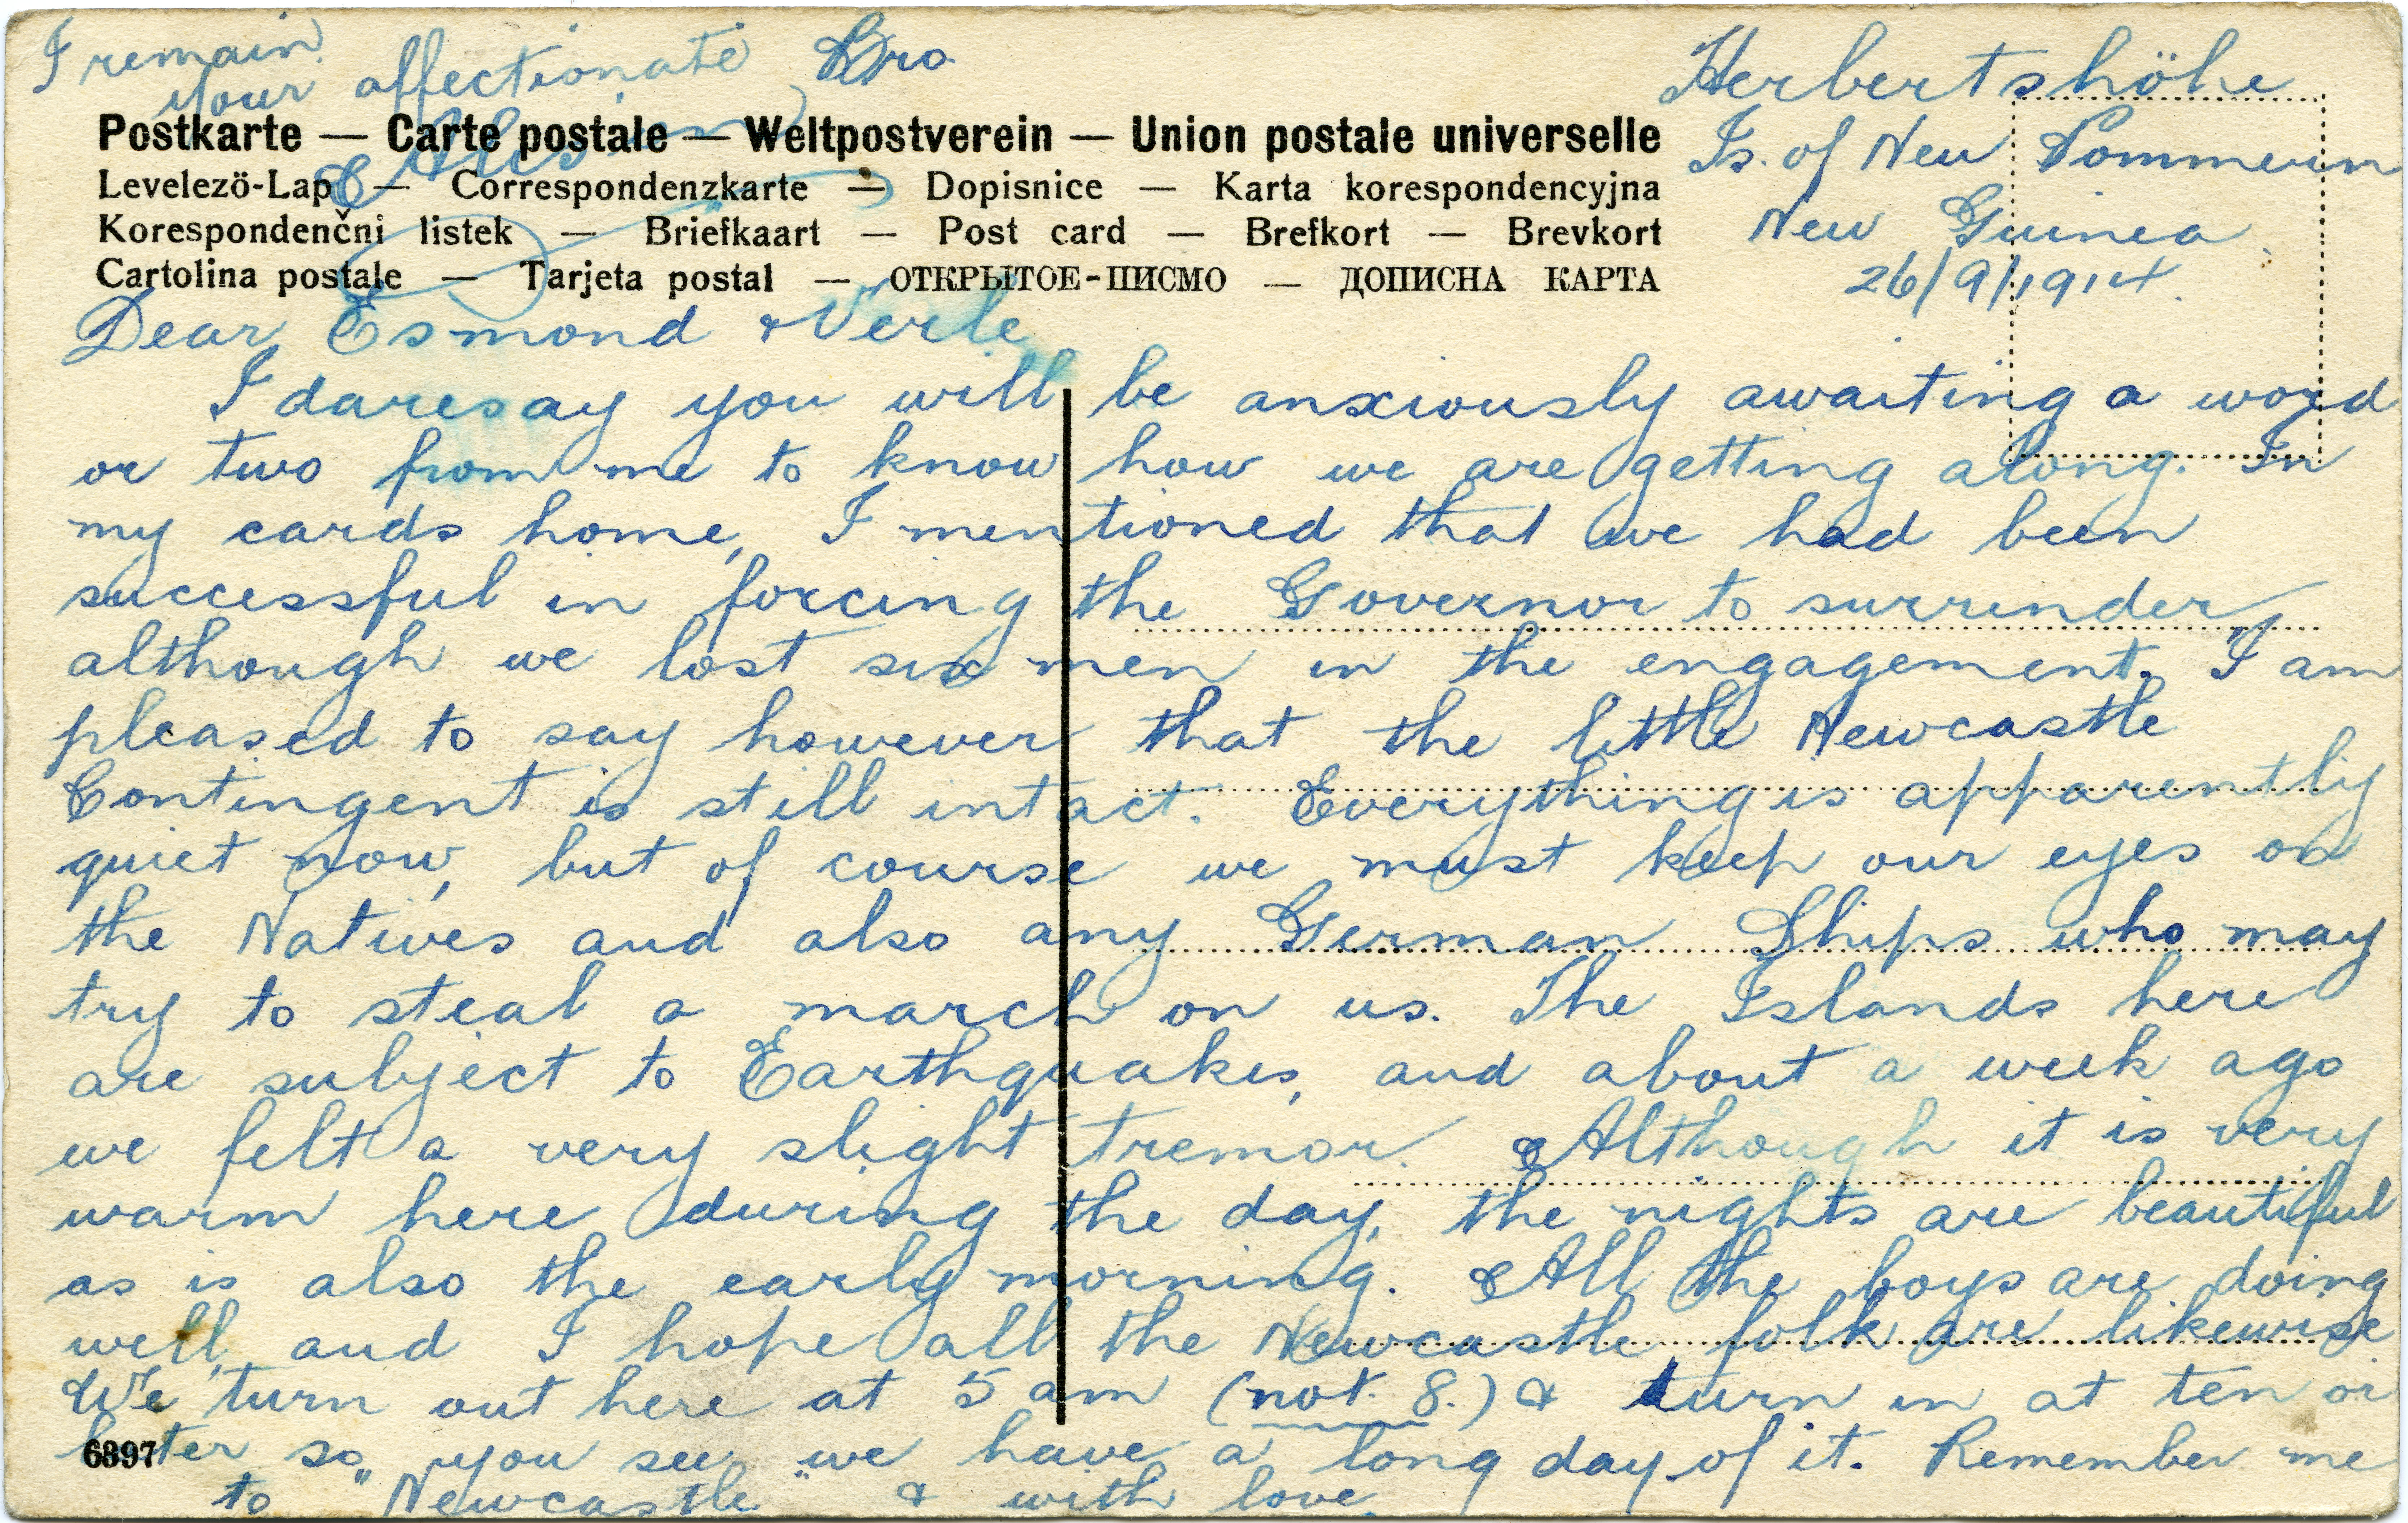 I remain
your affectionate Bro.
Postkarte — Carte postale — Weltpostverein — Union postale universelle
Levelezö-Lap — Correspondenzkarte — Dopisnice — Karta korespondencyjna
Korespondenčni listek — Briefkaart — Post card — Brefkort — Brevkort
Cartolina postale — Tarjeta postal — ОТКРЫТОЕ-ПИСМО — ДОПИСНА КАРТА
Herbertshöhe
Is. of New Pommern
New Guinea
26/9/1914.
Dear Esmond & Verle
I daresay you will be anxiously awaiting a word
or two from me to know how we are getting along. In
my cards home, I mentioned that we had been
successful in forcing the Governor to surrender,
although we lost six men in the engagement. I am
pleased to say however that the little Newcastle
Contingent is still intact. Everything is apparently
quiet now, but of course we must keep our eyes on
the Natives and also any German Ships who may
try to steal a march on us. The Islands here
are subject to Earthquakes, and about a week ago
we felt a very slight tremor. Although it is very
warm here during the day, the nights are beautiful
as is also the early morning. All the boys are doing
well, and I hope all the Newcastle folk are likewise
We turn out here at 5 am (not 8.) & turn in at ten or
later so you see we have a long day of it. Remember me
to "Newcastle" & with love.
6897